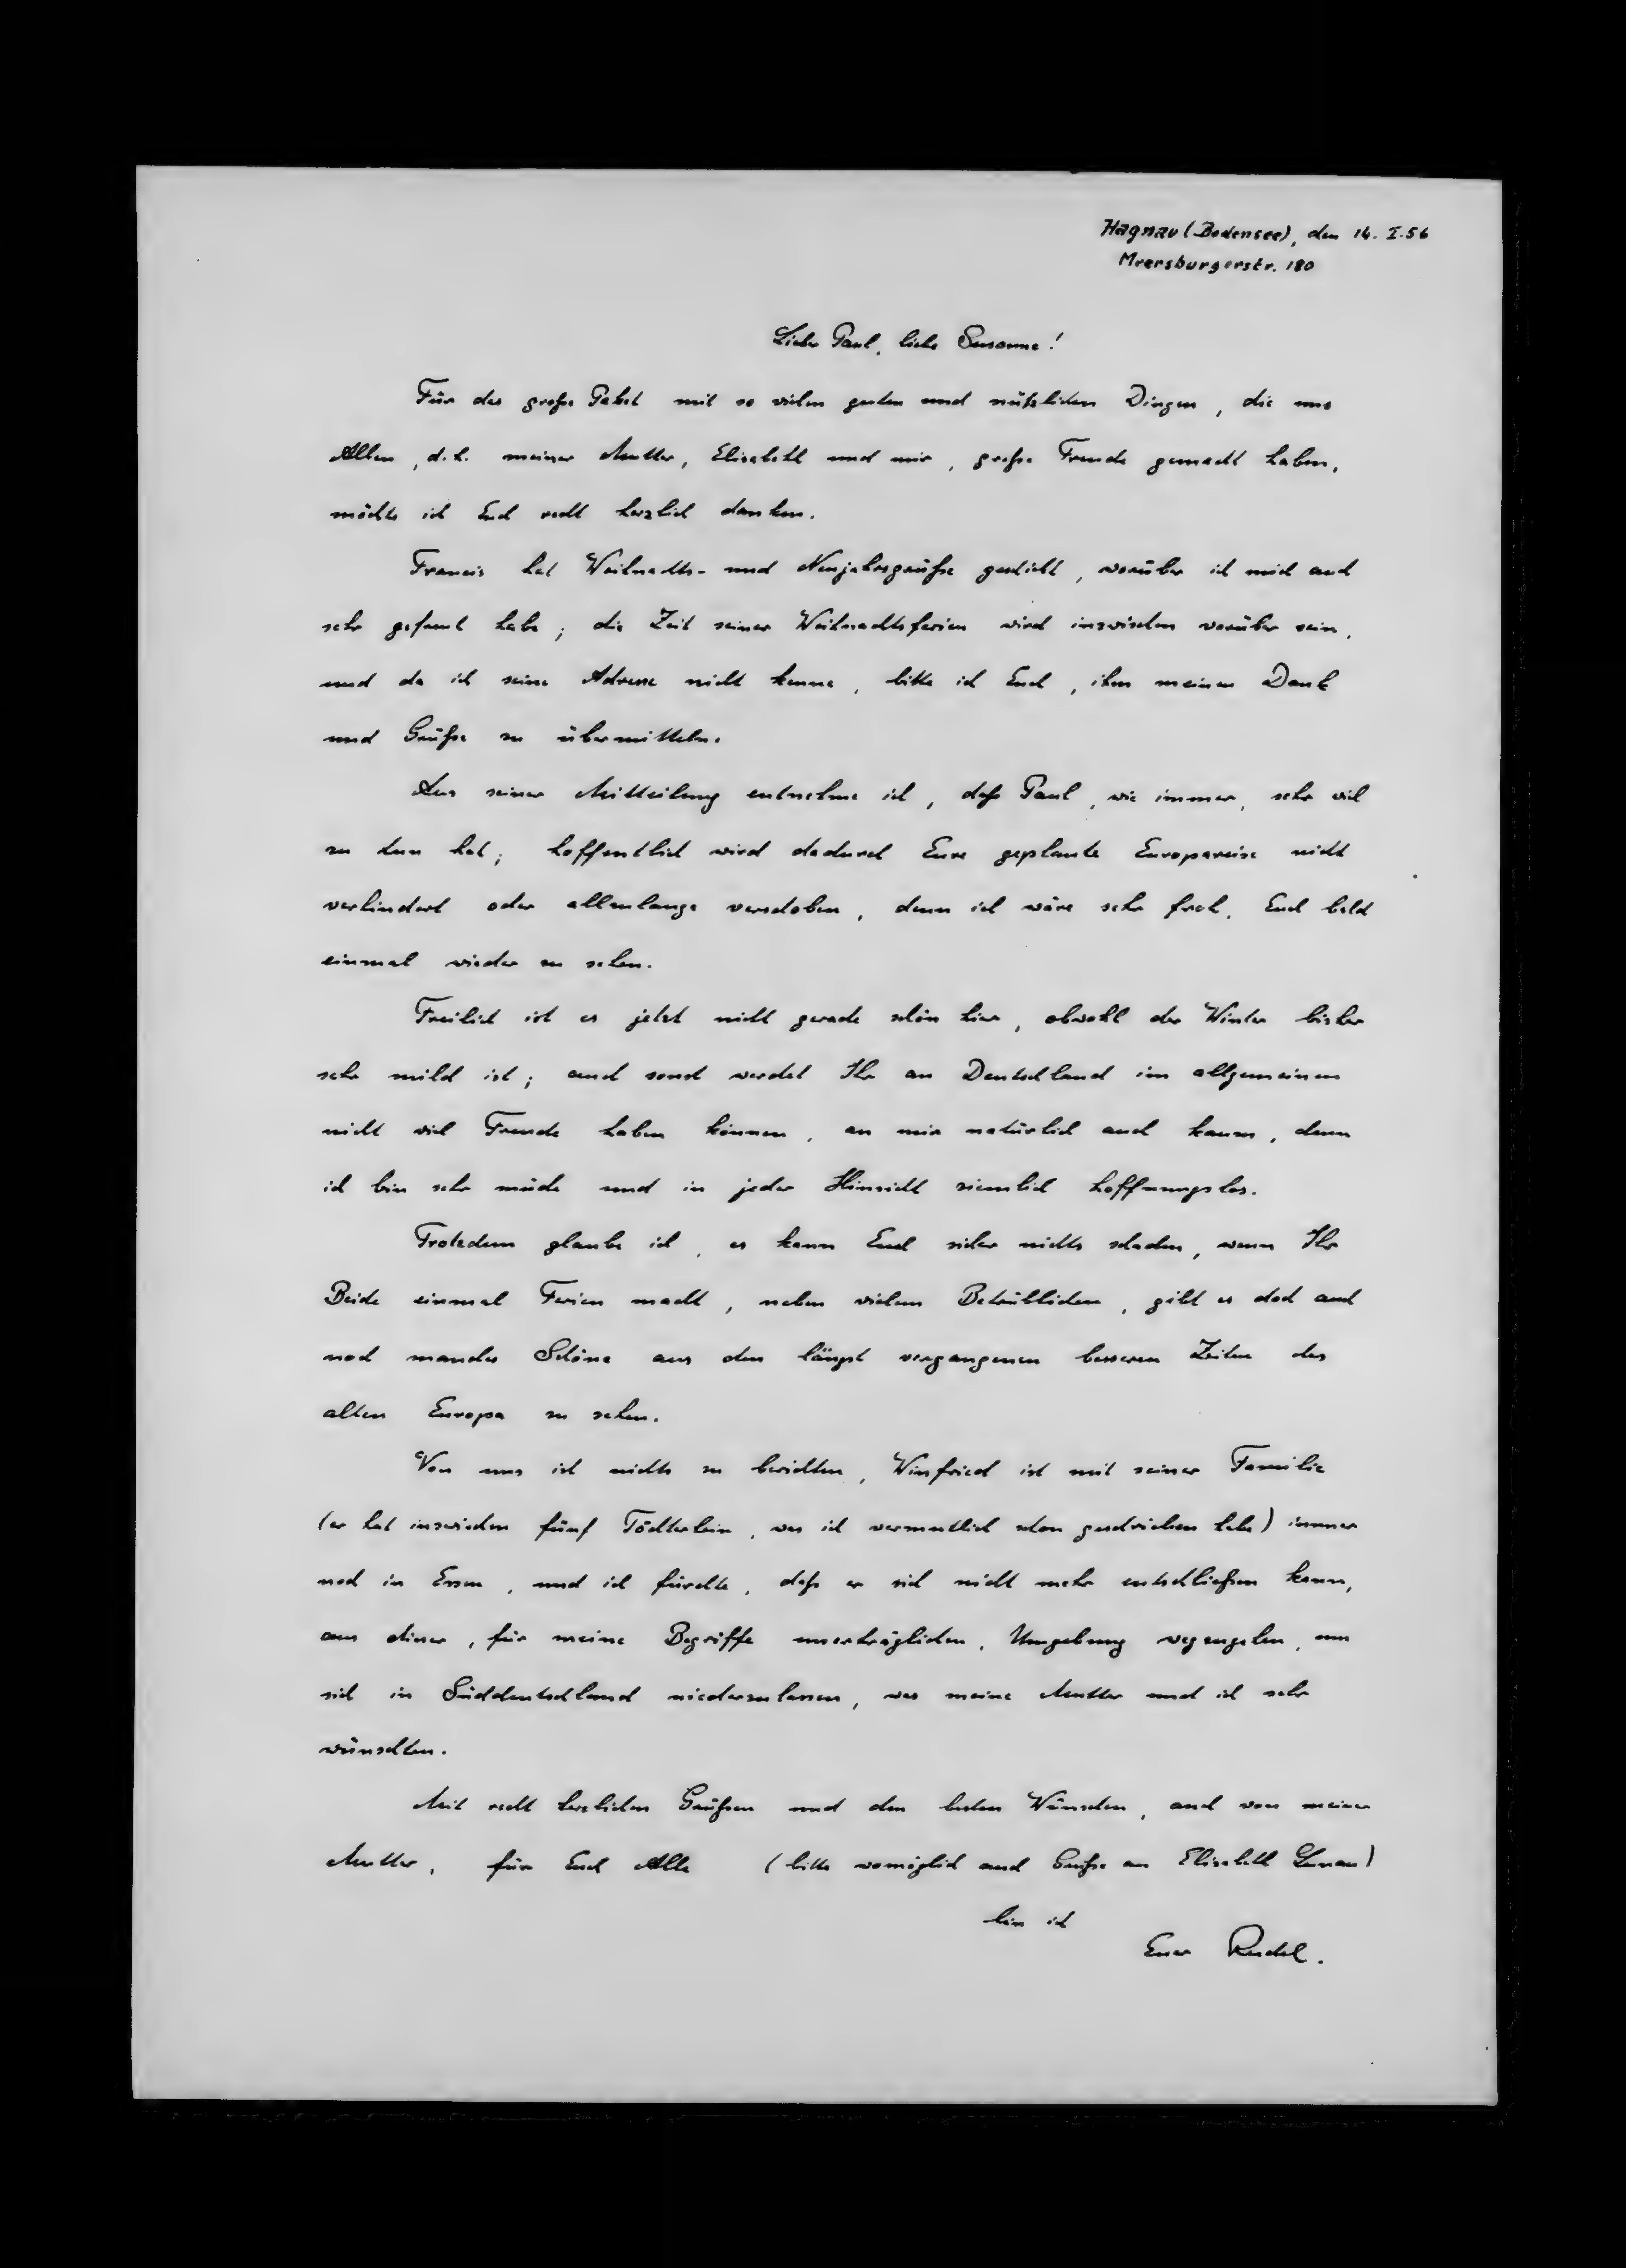 Hagnau (Bodensee), den 14. I. 56
Meersburgerstr. 180
Lieber Paul, liebe Susanne!
Für das große Paket mit so vielen guten und nützlichen Dingen, die uns
Allen, d.h. meiner Mutter, Elisabeth und mir, große Freude gemacht haben,
möchte ich Euch recht herzlich danken.
Francis hat Weihnachts- und Neujahrsgrüße geschickt, worüber ich mich auch
sehr gefreut habe; die Zeit seiner Weihnachtsferien wird inzwischen vorüber sein,
und da ich seine Adresse nicht kenne, bitte ich Euch, ihm meinen Dank
und Grüße zu übermitteln.
Aus seiner Mitteilung entnehme ich, daß Paul, wie immer, sehr viel
zu tun hat; hoffentlich wird dadurch Eure geplante Europareise nicht
verhindert oder allzulange verschoben, denn ich wäre sehr froh, Euch bald
einmal wieder zu sehen.
Freilich ist es jetzt nicht gerade schön hier, obwohl der Winter bisher
sehr mild ist; auch sonst werdet Ihr an Deutschland im allgemeinen
nicht viel Freude haben können, an mir natürlich auch kaum, denn
ich bin sehr müde und in jeder Hinsicht ziemlich hoffnungslos.
Trotzdem glaube ich, es kann Euch sicher nichts schaden, wenn Ihr
Beide einmal Ferien macht, neben vielem Betrüblichen, gibt es doch auch
noch manches Schöne aus den längst vergangenen besseren Zeiten des
alten Europa zu sehen.
Von uns ist nichts zu berichten, Winfried ist mit seiner Familie
(er hat inzwischen fünf Töchterlein, was ich vermutlich schon geschrieben habe) immer
noch in Essen, und ich fürchte, daß er sich nicht mehr entschließen kann,
aus dieser, für meine Begriffe unerträglichen, Umgebung wegzugehen, um
sich in Süddeutschland niederzulassen, was meine Mutter und ich sehr
wünschten.
Mit recht herzlichen Grüßen und den besten Wünschen, auch von meiner
Mutter, für Euch Alle (bitte womöglich auch Grüße an Elisabeth)
bin ich
Euer Rudel.